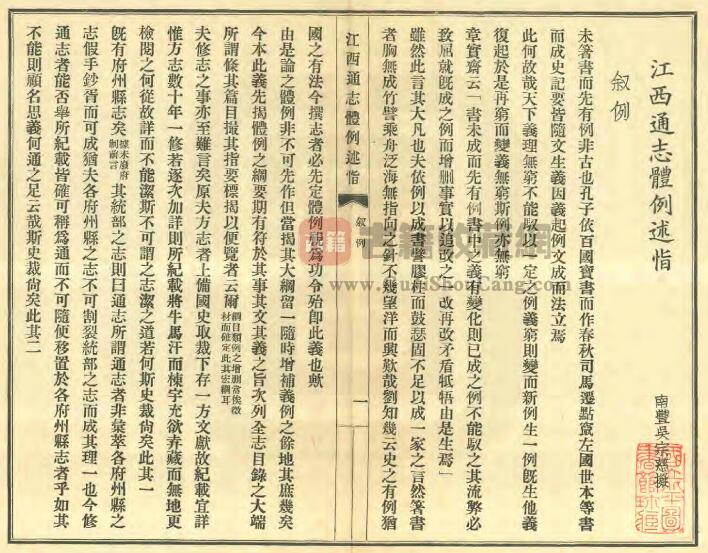 江西通志體例述恉
敘例
南豐吳宗慈撰
未箸書而先有例非古也孔子依百國寶書而作春秋司馬遷點竄左國世本等書
而成史記要皆隨文生義因義起例文成而法立焉
此何故哉天下義理無窮不能馭以一定之例義窮則變而新例生一例既生他義
復起於是再窮而變義無窮斯例亦無窮
章實齋云「書未成而先有例書中之義有變化則已成之例不能馭之其流弊必
致屈就既成之例而增刪事實以追改之一改再改矛盾牴牾由是生焉」
雖然此言其大凡也夫依例以成書譬膠柱而鼓瑟固不足以成一家之言然箸書
者胸無成竹譬乘舟泛海無指向之針不幾望洋而興歎哉劉知幾云史之有例猶
江西通志體例述恉
敘例
一
國之有法今撰志者必先定體例視為功令殆即此義也歟
由是論之體例非不可先作但當揭其大綱留一隨時增補義例之餘地其庶幾矣
今本此義先揭體例之綱要期有符於其事其文其義之旨次列全志目錄之大端
所謂條其篇目撮其指要標揭以便覽者云爾綱目類例之增刪當俟徵
材而確定此其宏綱耳
夫修志之事亦至難言矣原夫方志者上備國史取裁下存一方文獻故紀載宜詳
惟方志數十年一修若逐次加詳則所紀載將牛馬汗而棟宇充欲弆藏而無地更
檢閱之何從故詳而不能潔斯不可謂之志潔之道若何斯史裁尚矣此其一
既有府州縣志矣據未廢府
制前言其統部之志則曰通志所謂通志者非彙萃各府州縣之
志假手鈔胥而可成猶夫各府州縣之志不可割裂統部之志而成其理一也今修
通志者能否舉所紀載皆確可稱為通而不可隨便移置於各府州縣志者乎如其
不能則顧名思義何通之足云哉斯史裁尚矣此其二
古籍
古籍收藏網
GujiShouCang.com